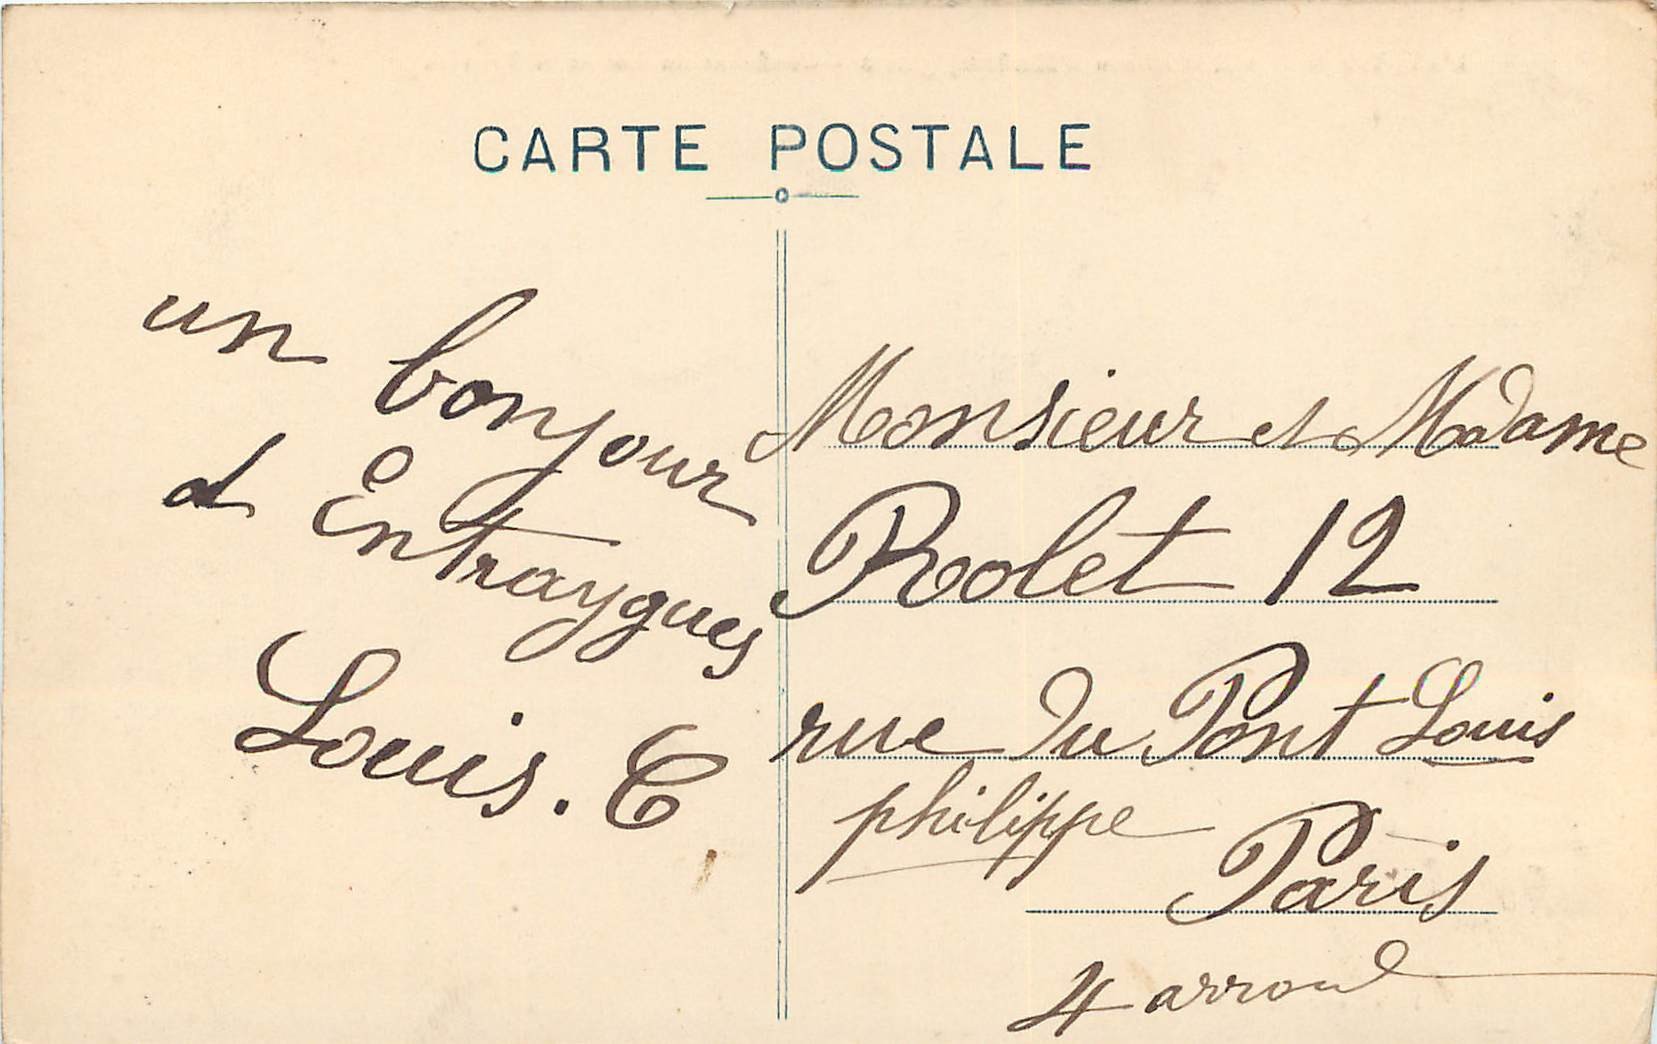 CARTE POSTALE
un bonjour
d Entraygues
Louis. C
Monsieur et Madame
Rolet 12
rue du Pont Louis
philippe
Paris
4 arrond